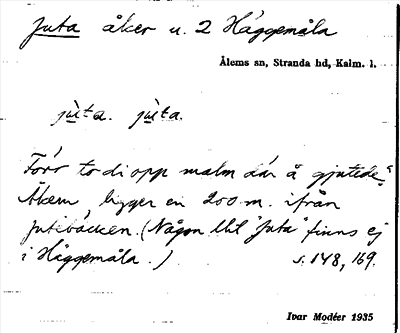 Juta åker u. 2 Häggemåla
Ålems sn, Stranda hd, Kalm. l.
jùta. jùta.
"Förr to di opp malm där å gjutede."
Åkern ligger en 200 m. ifrån
Jutebäcken. (Någon lht "Juta" finns ej
i Häggemåla.) s. 148, 169.
Ivar Modéer 1935